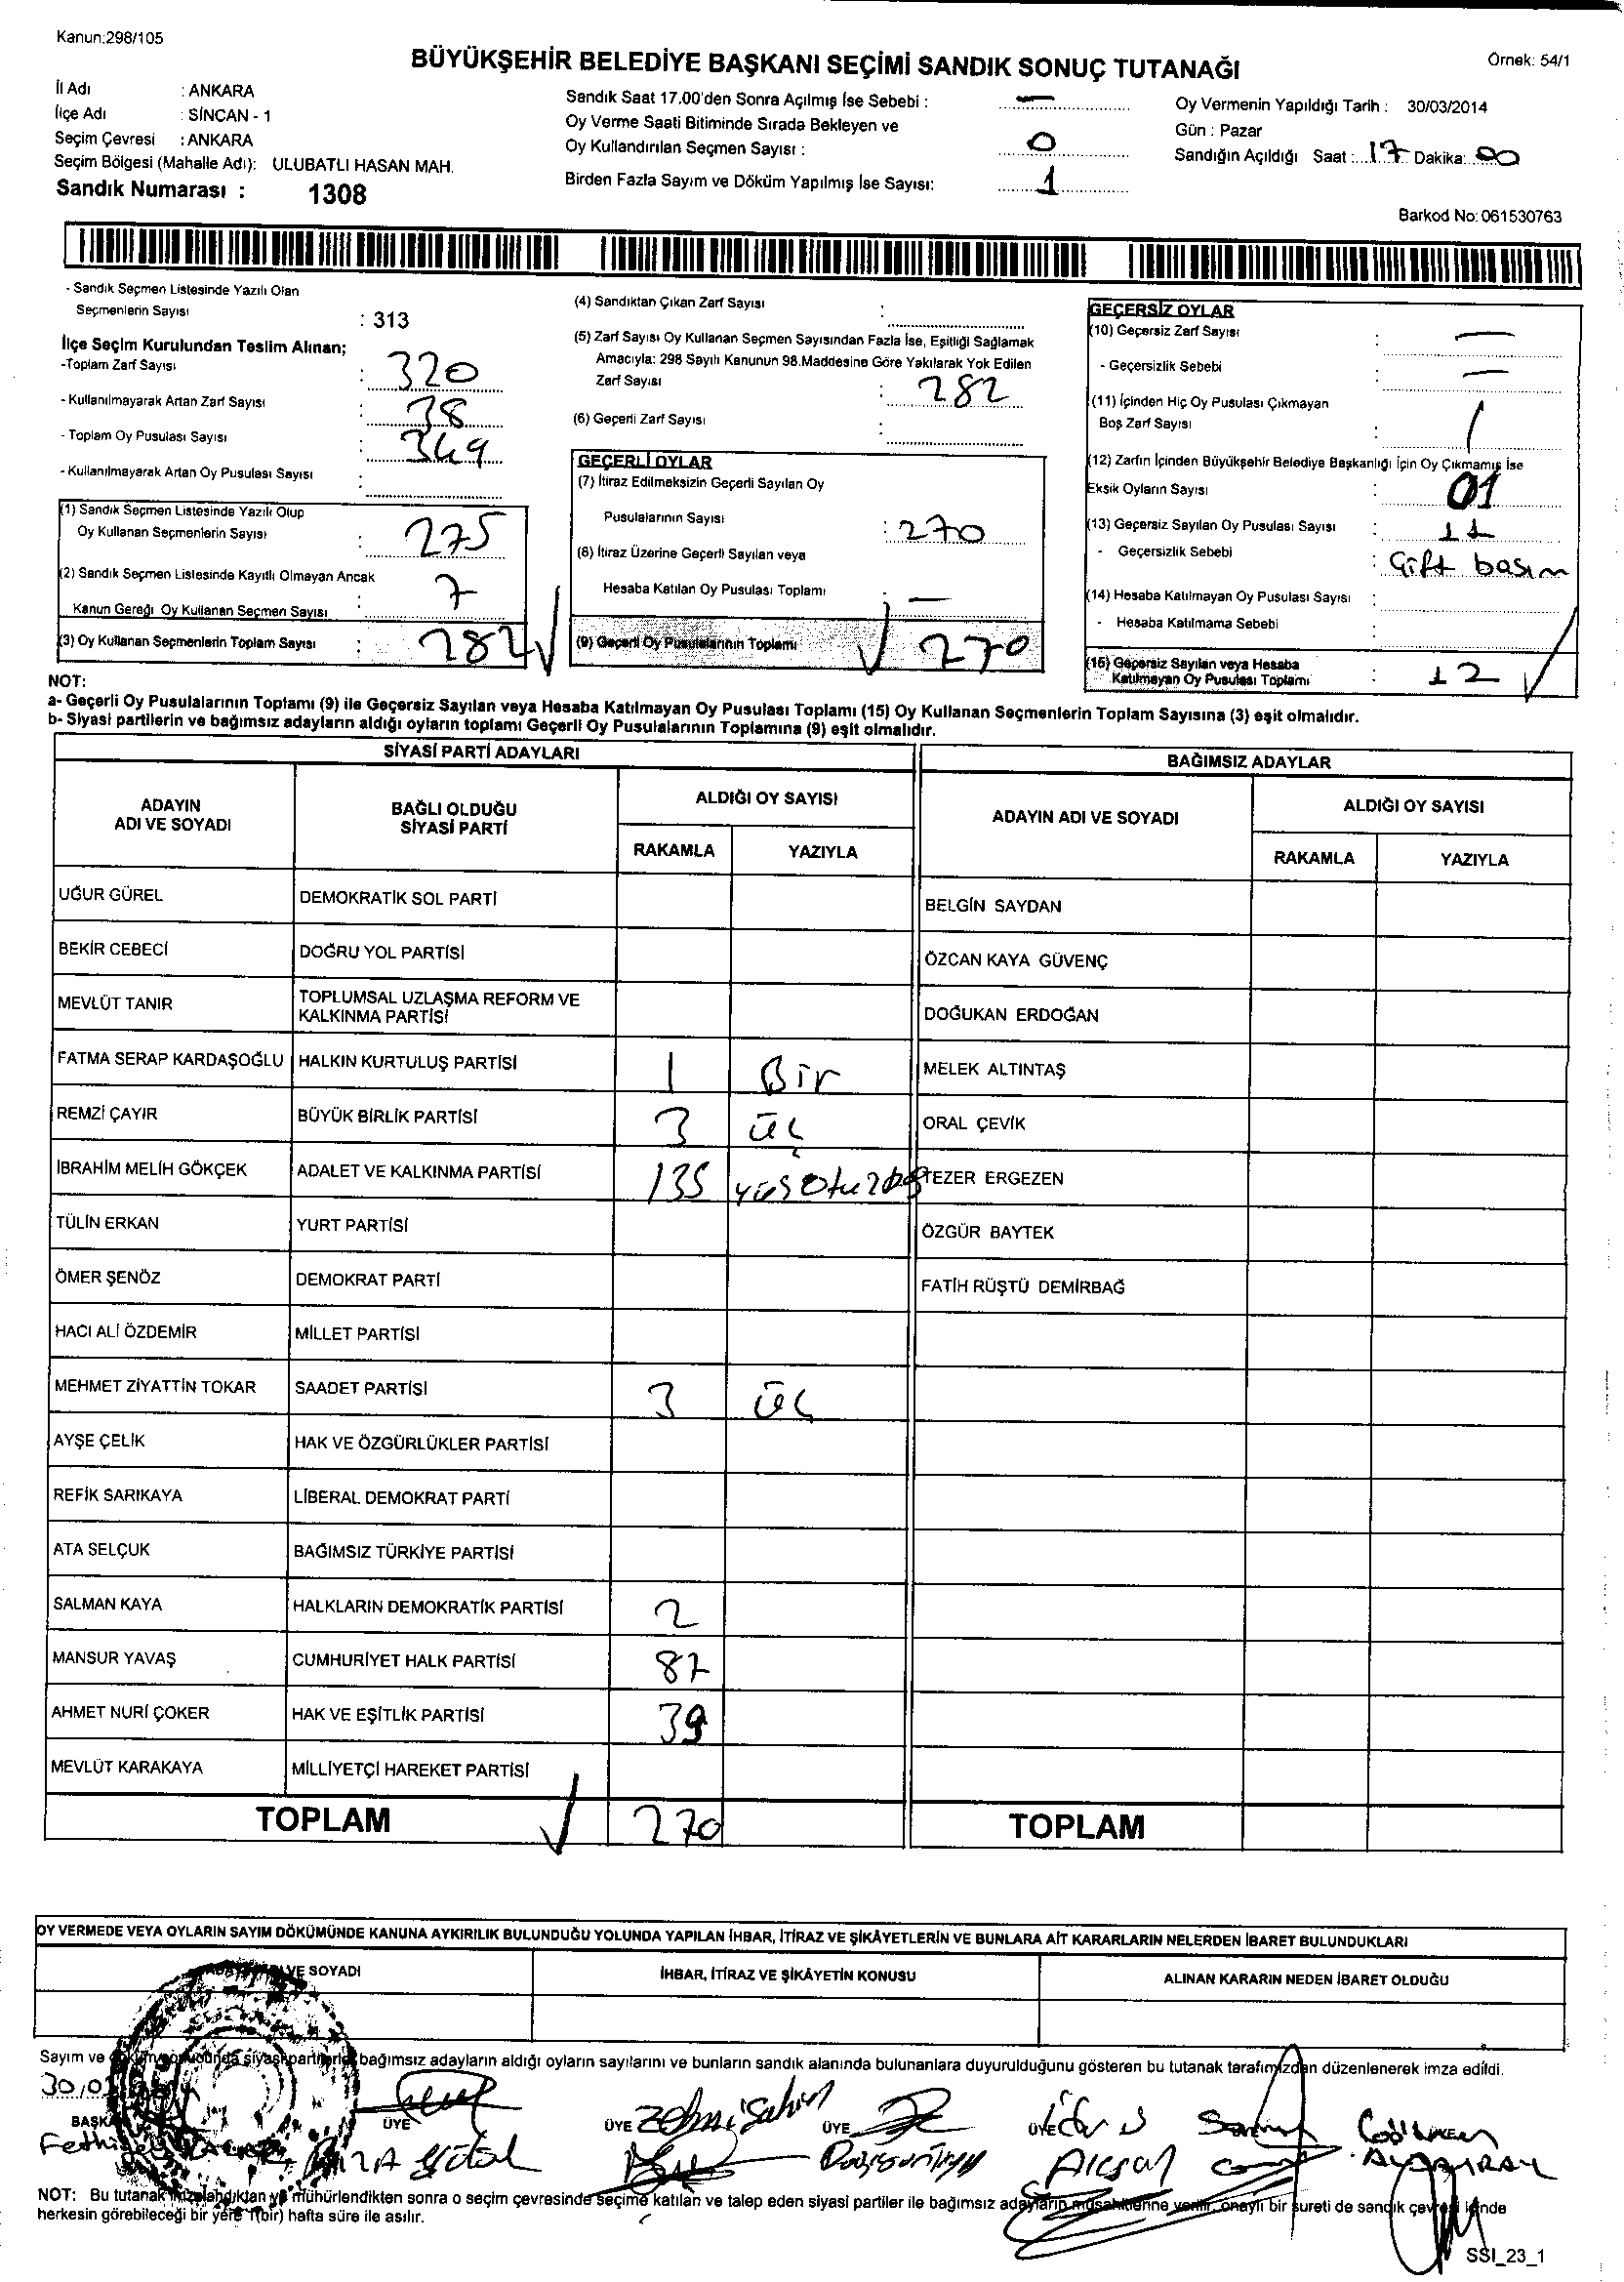 Kanun:298/105
BÜYÜKŞEHİR BELEDİYE BAŞKANI SEÇİMİ SANDIK SONUÇ TUTANAĞI
Örnek: 54/1
İl Adı : ANKARA
İlçe Adı : SİNCAN - 1
Seçim Çevresi : ANKARA
Seçim Bölgesi (Mahalle Adı): ULUBATLI HASAN MAH.
Sandık Numarası : 1308
Sandık Saat 17.00'den Sonra Açılmış İse Sebebi : —
Oy Verme Saati Bitiminde Sırada Bekleyen ve
Oy Kullandırılan Seçmen Sayısı : 0
Birden Fazla Sayım ve Döküm Yapılmış İse Sayısı: 1
Oy Vermenin Yapıldığı Tarih : 30/03/2014
Gün : Pazar
Sandığın Açıldığı Saat : 17 Dakika: 00
Barkod No: 061530763
- Sandık Seçmen Listesinde Yazılı Olan
Seçmenlerin Sayısı : 313
İlçe Seçim Kurulundan Teslim Alınan;
-Toplam Zarf Sayısı : 320
- Kullanılmayarak Artan Zarf Sayısı : 38
- Toplam Oy Pusulası Sayısı : 349
- Kullanılmayarak Artan Oy Pusulası Sayısı :
(1) Sandık Seçmen Listesinde Yazılı Olup
Oy Kullanan Seçmenlerin Sayısı : 275
(2) Sandık Seçmen Listesinde Kayıtlı Olmayan Ancak
Kanun Gereği Oy Kullanan Seçmen Sayısı : 7
(3) Oy Kullanan Seçmenlerin Toplam Sayısı : 282
(4) Sandıktan Çıkan Zarf Sayısı :
(5) Zarf Sayısı Oy Kullanan Seçmen Sayısından Fazla İse, Eşitliği Sağlamak
Amacıyla: 298 Sayılı Kanunun 98.Maddesine Göre Yakılarak Yok Edilen
Zarf Sayısı : 282
(6) Geçerli Zarf Sayısı :
GEÇERLİ OYLAR
(7) İtiraz Edilmeksizin Geçerli Sayılan Oy
Pusulalarının Sayısı : 270
(8) İtiraz Üzerine Geçerli Sayılan veya
Hesaba Katılan Oy Pusulası Toplamı : —
(9) Geçerli Oy Pusulalarının Toplamı 270
GEÇERSİZ OYLAR
(10) Geçersiz Zarf Sayısı : —
- Geçersizlik Sebebi : —
(11) İçinden Hiç Oy Pusulası Çıkmayan
Boş Zarf Sayısı : /
(12) Zarfın İçinden Büyükşehir Belediye Başkanlığı İçin Oy Çıkmamış İse
Eksik Oyların Sayısı : 01
(13) Geçersiz Sayılan Oy Pusulası Sayısı : 11
- Geçersizlik Sebebi : Çift basım
(14) Hesaba Katılmayan Oy Pusulası Sayısı :
- Hesaba Katılmama Sebebi :
(15) Geçersiz Sayılan veya Hesaba
Katılmayan Oy Pusulası Toplamı : 12
NOT:
a- Geçerli Oy Pusulalarının Toplamı (9) ile Geçersiz Sayılan veya Hesaba Katılmayan Oy Pusulası Toplamı (15) Oy Kullanan Seçmenlerin Toplam Sayısına (3) eşit olmalıdır.
b- Siyasi partilerin ve bağımsız adayların aldığı oyların toplamı Geçerli Oy Pusulalarının Toplamına (9) eşit olmalıdır.
SİYASİ PARTİ ADAYLARI
ADAYIN ADI VE SOYADI BAĞLI OLDUĞU SİYASİ PARTİ ALDIĞI OY SAYISI
RAKAMLA YAZIYLA
UĞUR GÜREL DEMOKRATİK SOL PARTİ
BEKİR CEBECİ DOĞRU YOL PARTİSİ
MEVLÜT TANIR TOPLUMSAL UZLAŞMA REFORM VE
KALKINMA PARTİSİ
FATMA SERAP KARDAŞOĞLU HALKIN KURTULUŞ PARTİSİ 1 Bir
REMZİ ÇAYIR BÜYÜK BİRLİK PARTİSİ 3 üç
İBRAHİM MELİH GÖKÇEK ADALET VE KALKINMA PARTİSİ 135
TÜLİN ERKAN YURT PARTİSİ
ÖMER ŞENÖZ DEMOKRAT PARTİ
HACI ALİ ÖZDEMİR MİLLET PARTİSİ
MEHMET ZİYATTİN TOKAR SAADET PARTİSİ 3 üç
AYŞE ÇELİK HAK VE ÖZGÜRLÜKLER PARTİSİ
REFİK SARIKAYA LİBERAL DEMOKRAT PARTİ
ATA SELÇUK BAĞIMSIZ TÜRKİYE PARTİSİ
SALMAN KAYA HALKLARIN DEMOKRATİK PARTİSİ 2
MANSUR YAVAŞ CUMHURİYET HALK PARTİSİ 87
AHMET NURİ ÇOKER HAK VE EŞİTLİK PARTİSİ 39
MEVLÜT KARAKAYA MİLLİYETÇİ HAREKET PARTİSİ
TOPLAM 270
BAĞIMSIZ ADAYLAR
ADAYIN ADI VE SOYADI ALDIĞI OY SAYISI
RAKAMLA YAZIYLA
BELGİN SAYDAN
ÖZCAN KAYA GÜVENÇ
DOĞUKAN ERDOĞAN
MELEK ALTINTAŞ
ORAL ÇEVİK
TEZER ERGEZEN
ÖZGÜR BAYTEK
FATİH RÜŞTÜ DEMİRBAĞ
TOPLAM
OY VERMEDE VEYA OYLARIN SAYIM DÖKÜMÜNDE KANUNA AYKIRILIK BULUNDUĞU YOLUNDA YAPILAN İHBAR, İTİRAZ VE ŞİKÂYETLERİN VE BUNLARA AİT KARARLARIN NELERDEN İBARET BULUNDUKLARI
VE SOYADI İHBAR, İTİRAZ VE ŞİKÂYETİN KONUSU ALINAN KARARIN NEDEN İBARET OLDUĞU
Sayım ve bağımsız adayların aldığı oyların sayılarını ve bunların sandık alanında bulunanlara duyurulduğunu gösteren bu tutanak tarafımızdan düzenlenerek imza edildi.
ÜYE ÜYE ÜYE ÜYE
NOT: Bu tutanak imzalandıktan ve mühürlendikten sonra o seçim çevresinde seçime katılan ve talep eden siyasi partiler ile bağımsız adayların müşahitlerine verilir, onaylı bir sureti de sandık çevresi içinde
herkesin görebileceği bir yere 1(bir) hafta süre ile asılır.
SSI_23_1